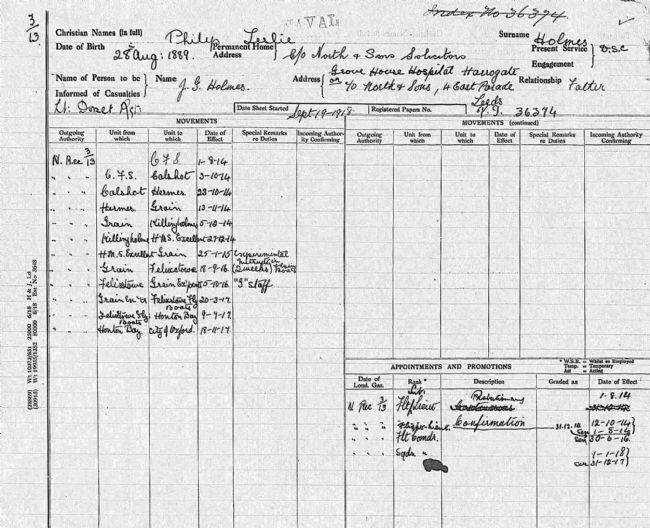 3/13
NAVAL
Index No 36374
Christian Names (in full) Philip Leslie Surname Holmes
Date of Birth 28 Aug: 1889. Permanent Home Address C/o North & Sons Solicitors Present Service D.S.C
Engagement
Name of Person to be Informed of Casualties Name J. G. Holmes. Address Grove House Hospital Harrogate Relationship Father
or C/o North & Sons, 4 East Parade Leeds
Date Sheet Started Sept 19-1918 Registered Papers No. 36374
MOVEMENTS MOVEMENTS (continued)
Outgoing Authority Unit from which Unit to which Date of Effect Special Remarks re Duties Incoming Authority Confirming Outgoing Authority Unit from which Unit to which Date of Effect Special Remarks re Duties Incoming Authority Confirming
N. Rec 3/13 C.F.S. 1-8-14
" " C.F.S. Calshot 3-10-14
" " Calshot Hermes 23-10-14
" " Hermes Grain 13-11-14
" " Grain Killingholme 5-12-14
" " Killingholme H.M.S. Excellent 27-12-14
" " H.M.S. Excellent Grain 25-1-15 Experimental
" " Grain Felixstowe 18-9-16
" " Felixstowe Grain 5-10-16 "G" Staff
" " Grain Felixstowe Fly. Boats 20-3-17
" " Felixstowe Fly. Boats Honton Bay 9-7-17
" " Honton Bay City of Oxford. 18-11-17
* W.S.E. = Whilst so Employed
Temp. = Temporary
Act = Acting
APPOINTMENTS AND PROMOTIONS
Date of Lond. Gaz. Rank * Description Graded as Date of Effect
N Rec 3/13 Flt Sub Lieut Probationary 1.8.14
" " Confirmation 31.12.14 12-10-14
Sen 1-8-14
" " Flt Comdr. Sen 30-6-16
" " Sqdn " 1-1-18
Sen 31-12-17